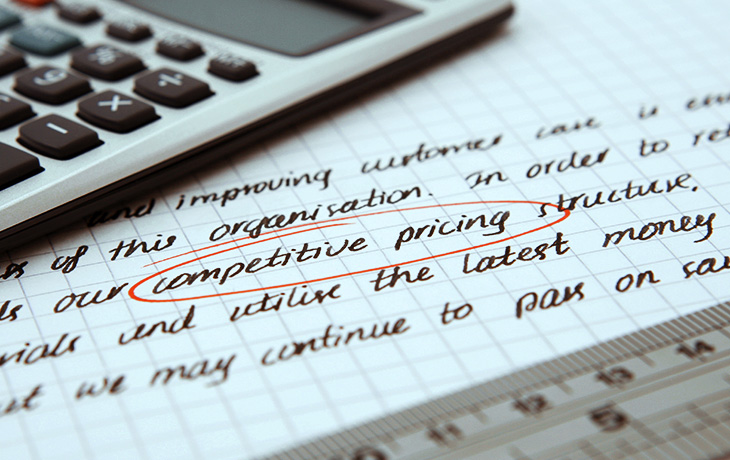 and improving customer care is
of this organisation. In order to
our competitive pricing structure.
and utilise the latest money
we may continue to pass on
% 9 ÷ × −
10 11 12 13 14
5